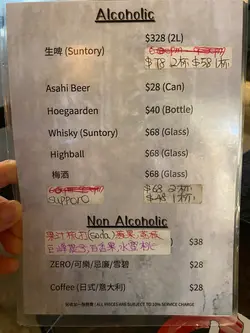 Alcoholic
生啤 (Suntory) $328 (2L)
$78 2杯 $58 1杯
Asahi Beer $28 (Can)
Hoegaarden $40 (Bottle)
Whisky (Suntory) $68 (Glass)
Highball $68 (Glass)
梅酒 $68 (Glass)
$68 2杯
SUPPORO $48 1杯
Non Alcoholic
果汁梳打(Soda)
巨峰提子, 百香果, 水蜜桃 $38
ZERO/可樂/忌廉/雪碧 $28
Coffee (日式/意大利) $28
ALL PRICES ARE SUBJECTS TO 10% SERVICE CHARGE